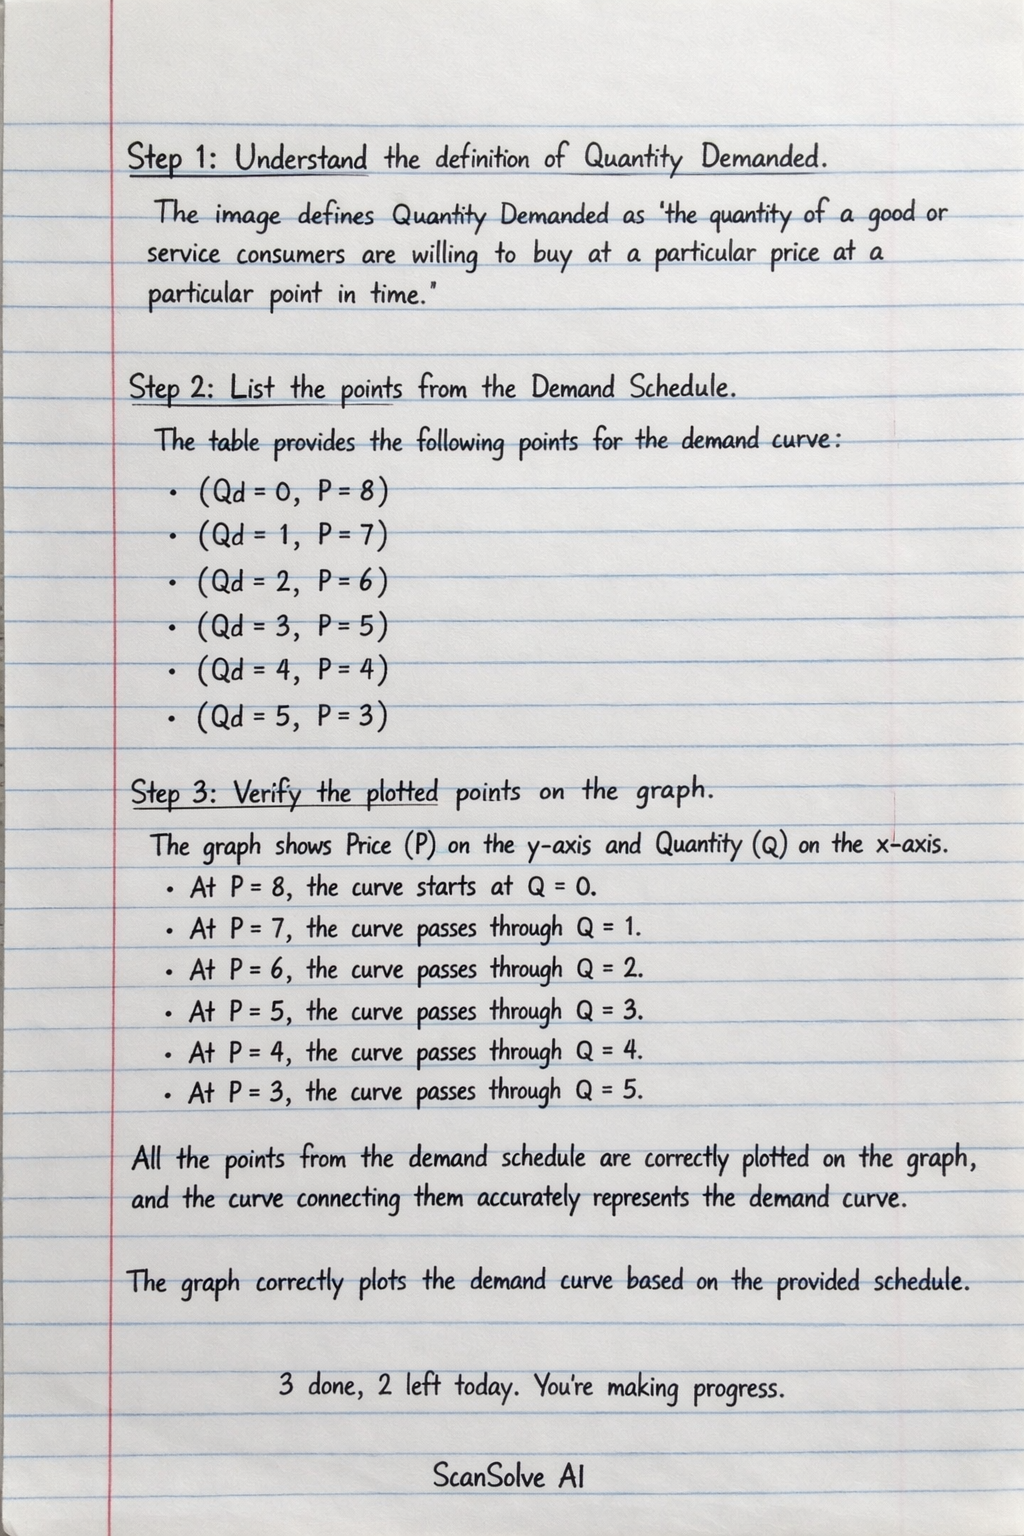 Step 1: Understand the definition of Quantity Demanded.
The image defines Quantity Demanded as 'the quantity of a good or
service consumers are willing to buy at a particular price at a
particular point in time."
Step 2: List the points from the Demand Schedule.
The table provides the following points for the demand curve:
• (Qd = 0, P = 8)
• (Qd = 1, P = 7)
• (Qd = 2, P = 6)
• (Qd = 3, P = 5)
• (Qd = 4, P = 4)
• (Qd = 5, P = 3)
Step 3: Verify the plotted points on the graph.
The graph shows Price (P) on the y-axis and Quantity (Q) on the x-axis.
• At P = 8, the curve starts at Q = 0.
• At P = 7, the curve passes through Q = 1.
• At P = 6, the curve passes through Q = 2.
• At P = 5, the curve passes through Q = 3.
• At P = 4, the curve passes through Q = 4.
• At P = 3, the curve passes through Q = 5.
All the points from the demand schedule are correctly plotted on the graph,
and the curve connecting them accurately represents the demand curve.
The graph correctly plots the demand curve based on the provided schedule.
3 done, 2 left today. You're making progress.
ScanSolve AI